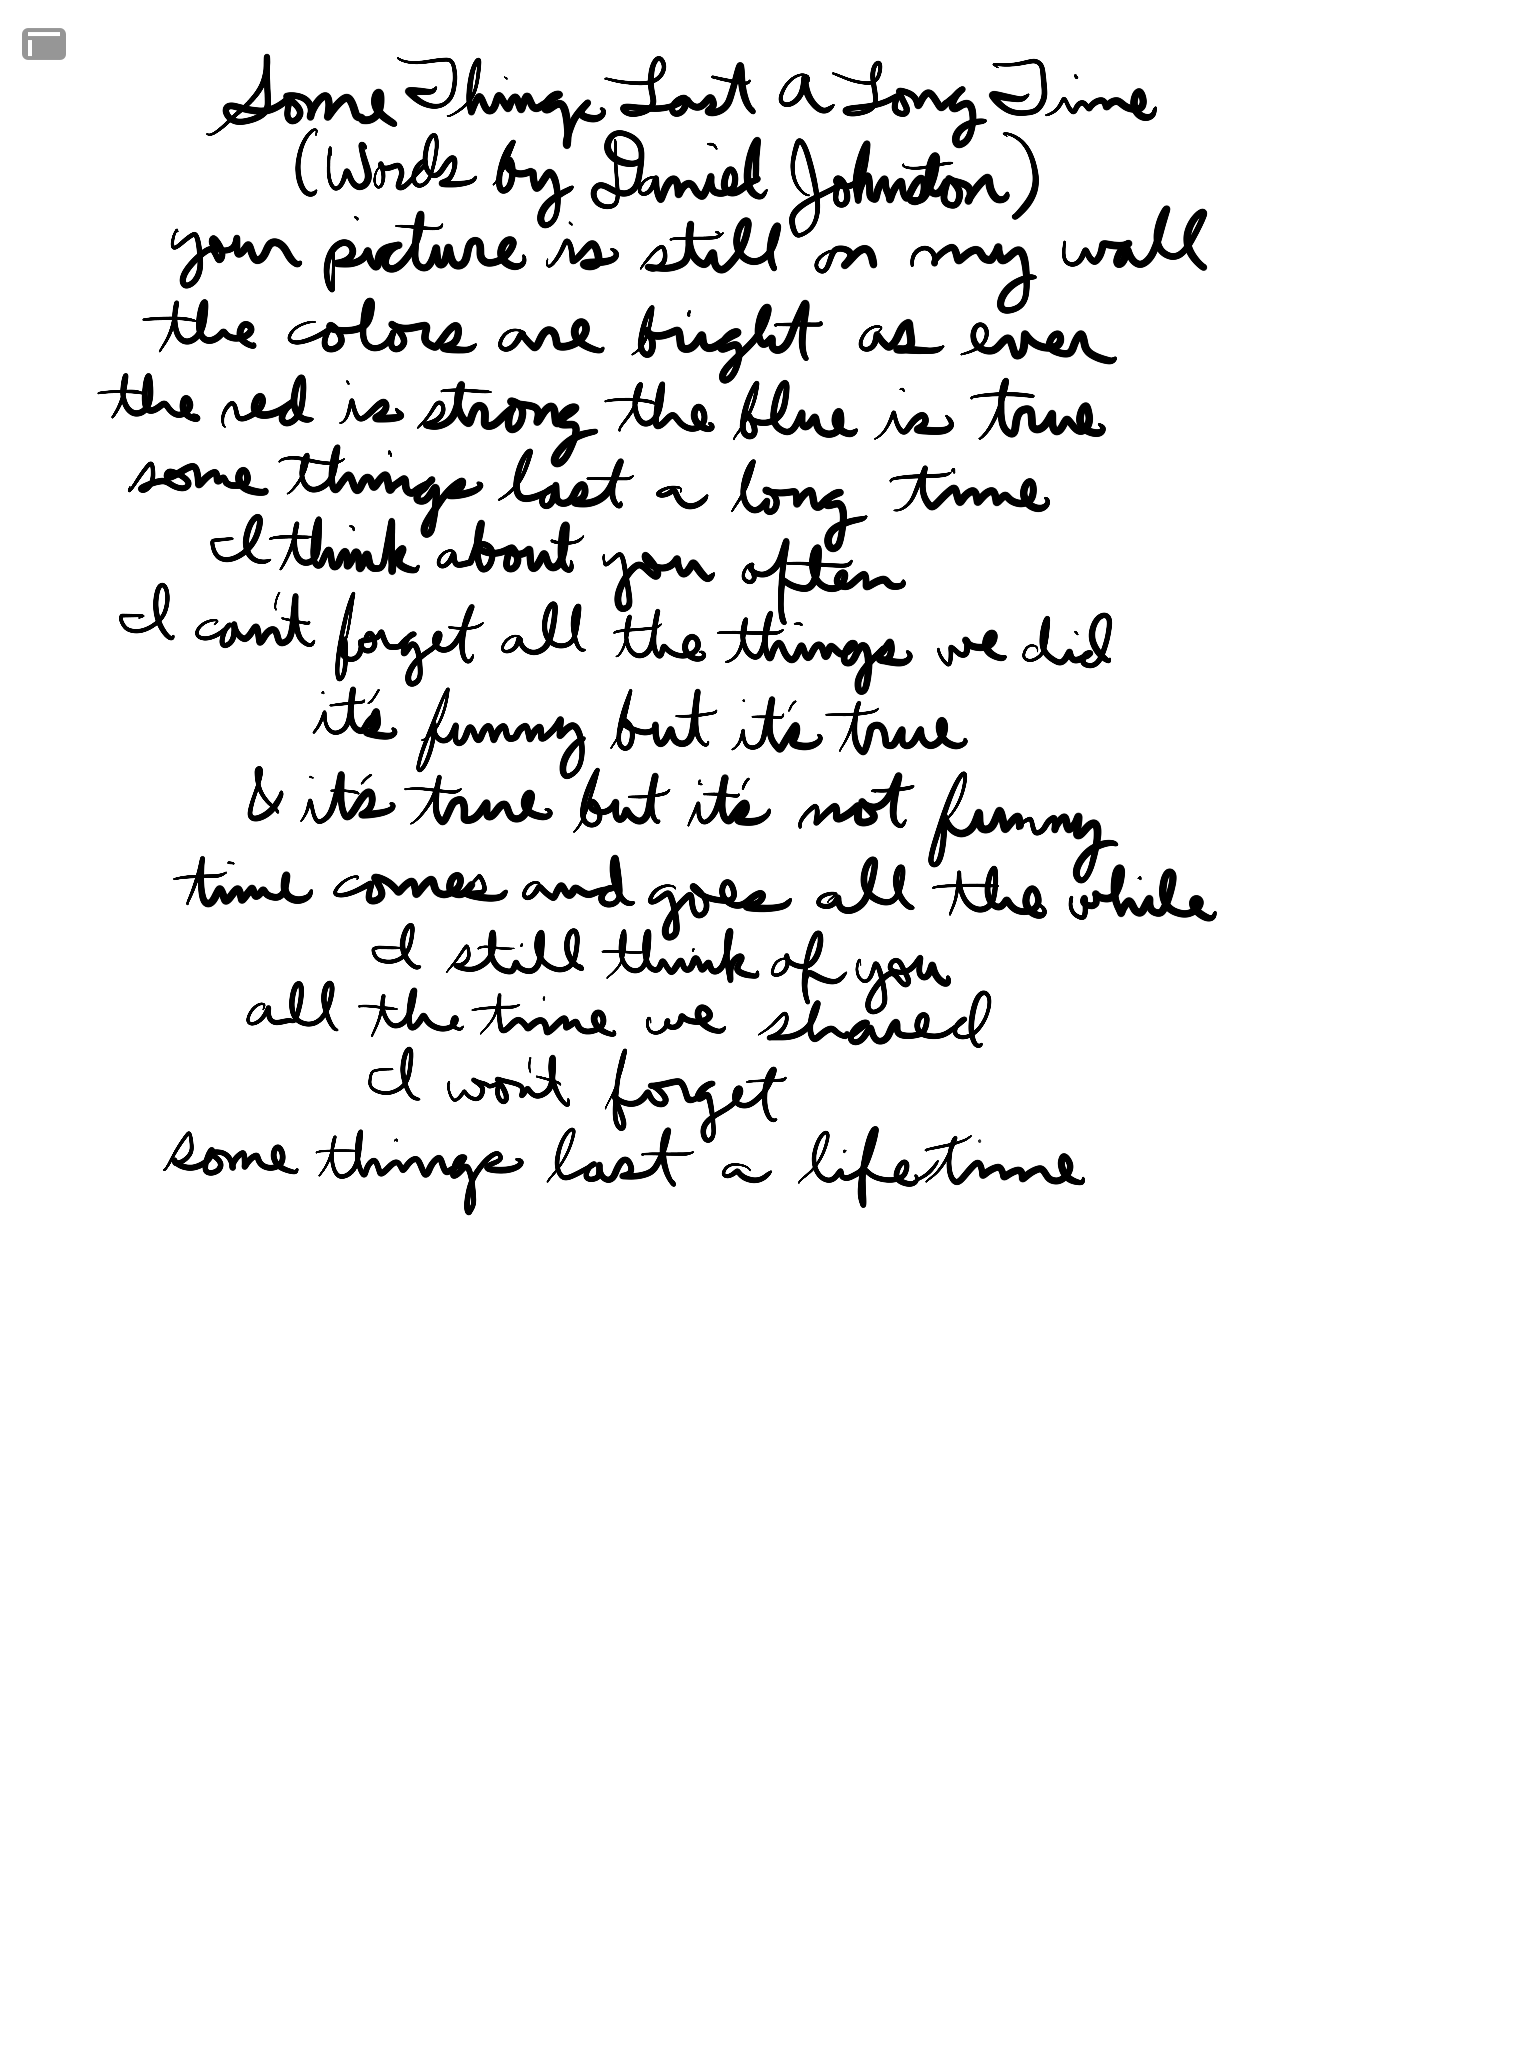 Some Things Last A Long Time
(Words by Daniel Johnston)
your picture is still on my wall
the colors are bright as ever
the red is strong the blue is true
some things last a long time
I think about you often
I can't forget all the things we did
it's funny but it's true
& it's true but it's not funny
time comes and goes all the while
I still think of you
all the time we shared
I won't forget
some things last a lifetime